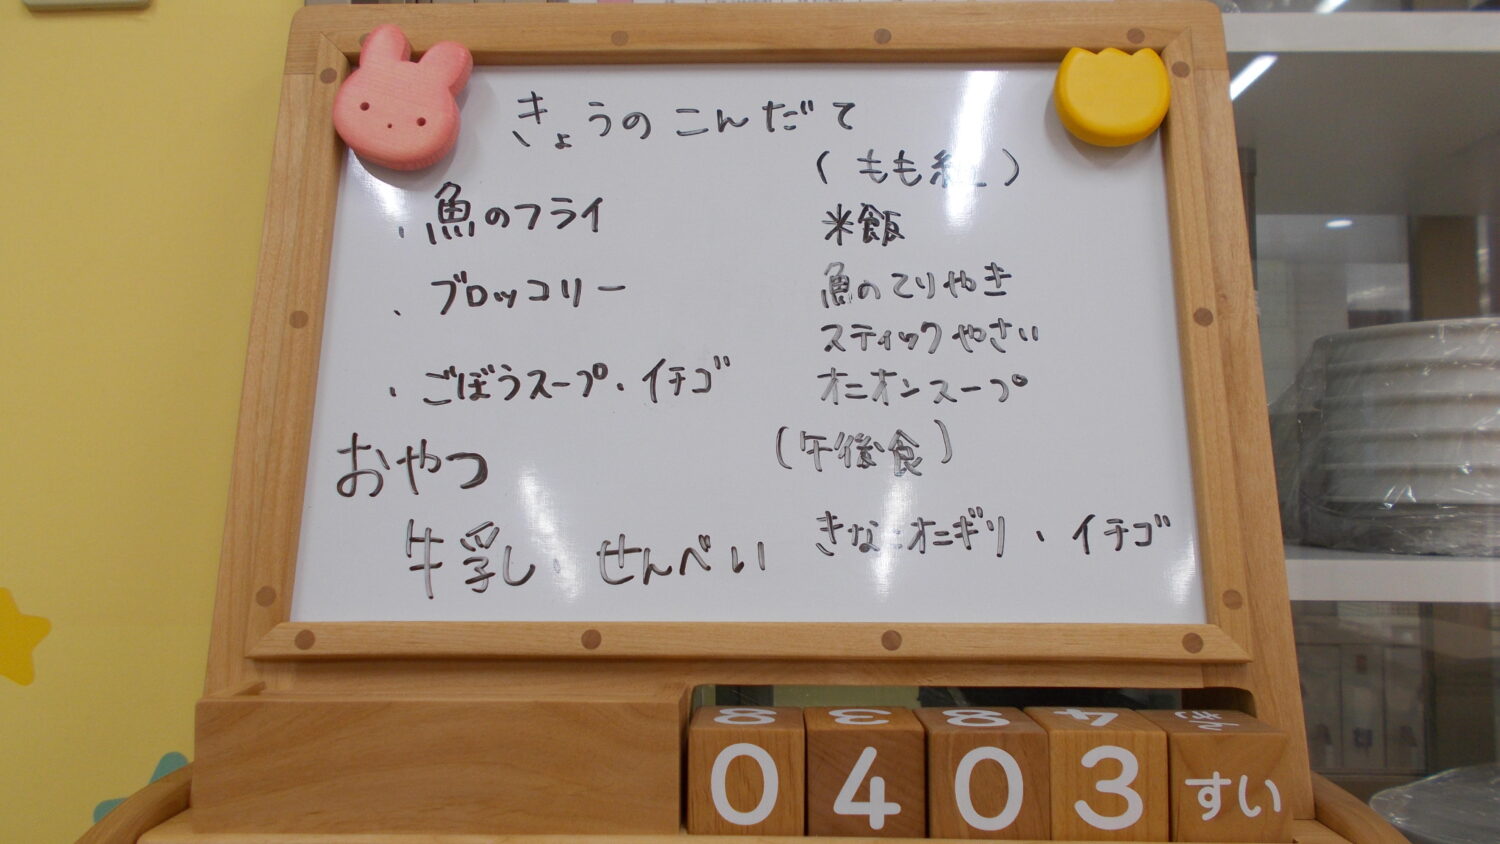 きょうのこんだて
・魚のフライ
・ブロッコリー
・ごぼうスープ・イチゴ
おやつ
牛乳・せんべい
(もも組)
米飯
魚のてりやき
スティックやさい
オニオンスープ
(午後食)
きなこオニギリ、イチゴ
8 3 8 4 きん
0 4 0 3 すい